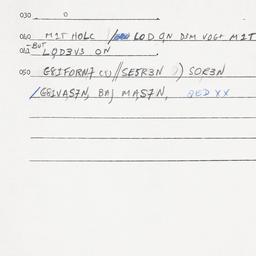 030 0
040 M1T HOLC / LOD QN D3M VOGt M1T
BUT
041 LQD3V3 ON
050 G81FORN7 (1) // SE5R3N ) SOR3N
/G81VAS7N, BAJ MAS7N, QED XX